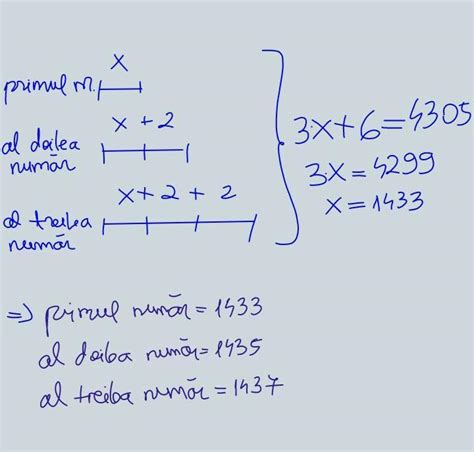 x
primul m.
x + 2
al doilea
număr
x + 2 + 2
al treilea
număr
3x+6=4305
3x=4299
x=1433
=> primul număr=1433
al doilea număr=1435
al treilea număr=1437